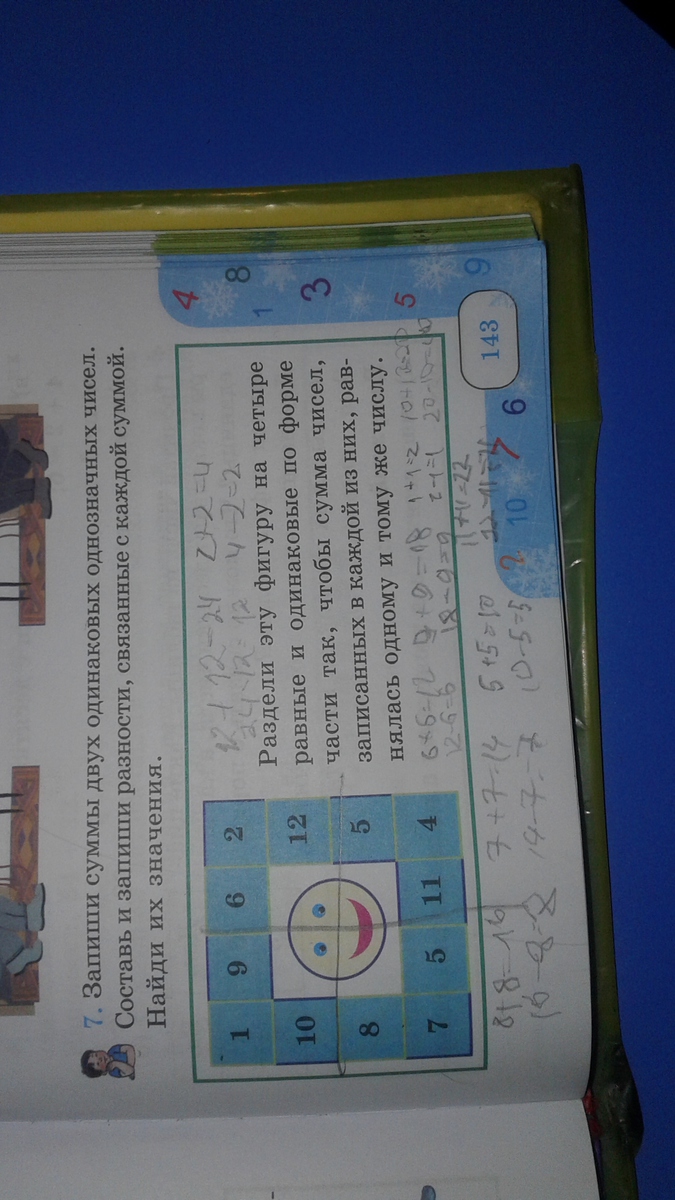 7. Запиши суммы двух одинаковых однозначных чисел.
Составь и запиши разности, связанные с каждой суммой.
Найди их значения.
1 9 6 2
10 12
8 5
7 5 11 4
12+12=24 2+2=4
24-12=12 4-2=2
Раздели эту фигуру на четыре
равные и одинаковые по форме
части так, чтобы сумма чисел,
записанных в каждой из них, рав-
нялась одному и тому же числу.
6+6=12 9+9=18 1+1=2
12-6=6 18-9=9 2-1=1
11+11=22
8+8=16 7+7=14 5+5=10
16-8=8 14-7=7 10-5=5
4 8 1 3 5 9
143
2 10 7 6